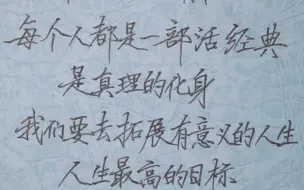 每个人都是一部活经典
是真理的化身
我们要去拓展有意义的人生
人生最高的目标